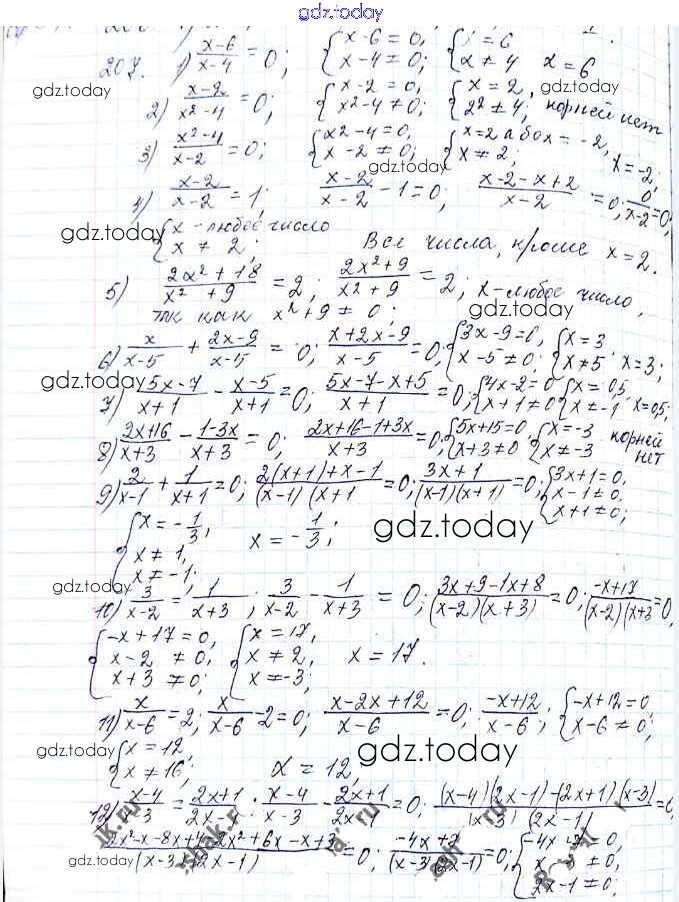 gdz.today
207. 1) (x-6)/(x-4) = 0; {x-6=0, x-4=0; { =6 x≠4 x=6
gdz.today
2) (x-2)/(x²-4) = 0; {x-2=0, x²-4≠0; {x=2, 2²≠4; корней нет
gdz.today
3) (x²-4)/(x-2) = 0; {x²-4=0, x-2≠0; {x=2 або x=-2, x≠2; x=-2;
gdz.today
4) (x-2)/(x-2) = 1; (x-2)/(x-2) - 1 = 0; (x-2-x+2)/(x-2) = 0; 0/(x-2) = 0;
{x-любое число x≠2; Все числа, кроме x=2.
gdz.today
5) (2x²+18)/(x²+9) = 2; (2x²+9)/(x²+9) = 2; x-любое число,
так как x²+9≠0.
gdz.today
6) x/(x-5) + (2x-9)/(x-5) = 0; (x+2x-9)/(x-5) = 0; {3x-9=0, x-5≠0; {x=3 x≠5. x=3;
gdz.today
7) (5x-7)/(x+1) - (x-5)/(x+1) = 0; (5x-7-x+5)/(x+1) = 0; {4x-2=0 x+1≠0 {x=0,5 x≠-1, x=0,5;
8) (2x+16)/(x+3) - (1-3x)/(x+3) = 0; (2x+16-1+3x)/(x+3) = 0; {5x+15=0, x+3≠0 {x=-3 x≠-3 корней нет
9) 2/(x-1) + 1/(x+1) = 0; (2(x+1)+x-1)/((x-1)(x+1 = 0; (3x+1)/((x-1)(x+1)) = 0; {3x+1=0, x-1≠0, x+1≠0;
{x=-1/3, x≠1, x≠-1; x=-1/3;
gdz.today
gdz.today
10) 3/(x-2) = 1/(x+3); 3/(x-2) - 1/(x+3) = 0; (3x+9-1x+8)/((x-2)(x+3)) = 0; (-x+17)/((x-2)(x+3 = 0,
gdz.today
{-x+17=0, x-2≠0, x+3≠0; {x=17, x≠2, x≠-3; x=17.
11) x/(x-6) = 2; x/(x-6) - 2 = 0; (x-2x+12)/(x-6) = 0; (-x+12)/(x-6); {-x+12=0 x-6≠0;
gdz.today
{x=12 x≠16; x=12,
gdz.today
12) (x-4)/( -3) = (2x+1)/(2x-1); (x-4)/(x-3) - (2x+1)/(2x-1) = 0; ((x-4)(2x-1)-(2x+1)(x-3))/((x-3)(2x-1)) = 0
(2x²-x-8x+4-2x²+6x-x+3)/((x-3)(2x-1)) = 0; (-4x+7)/((x-3)(2x-1)) = 0;